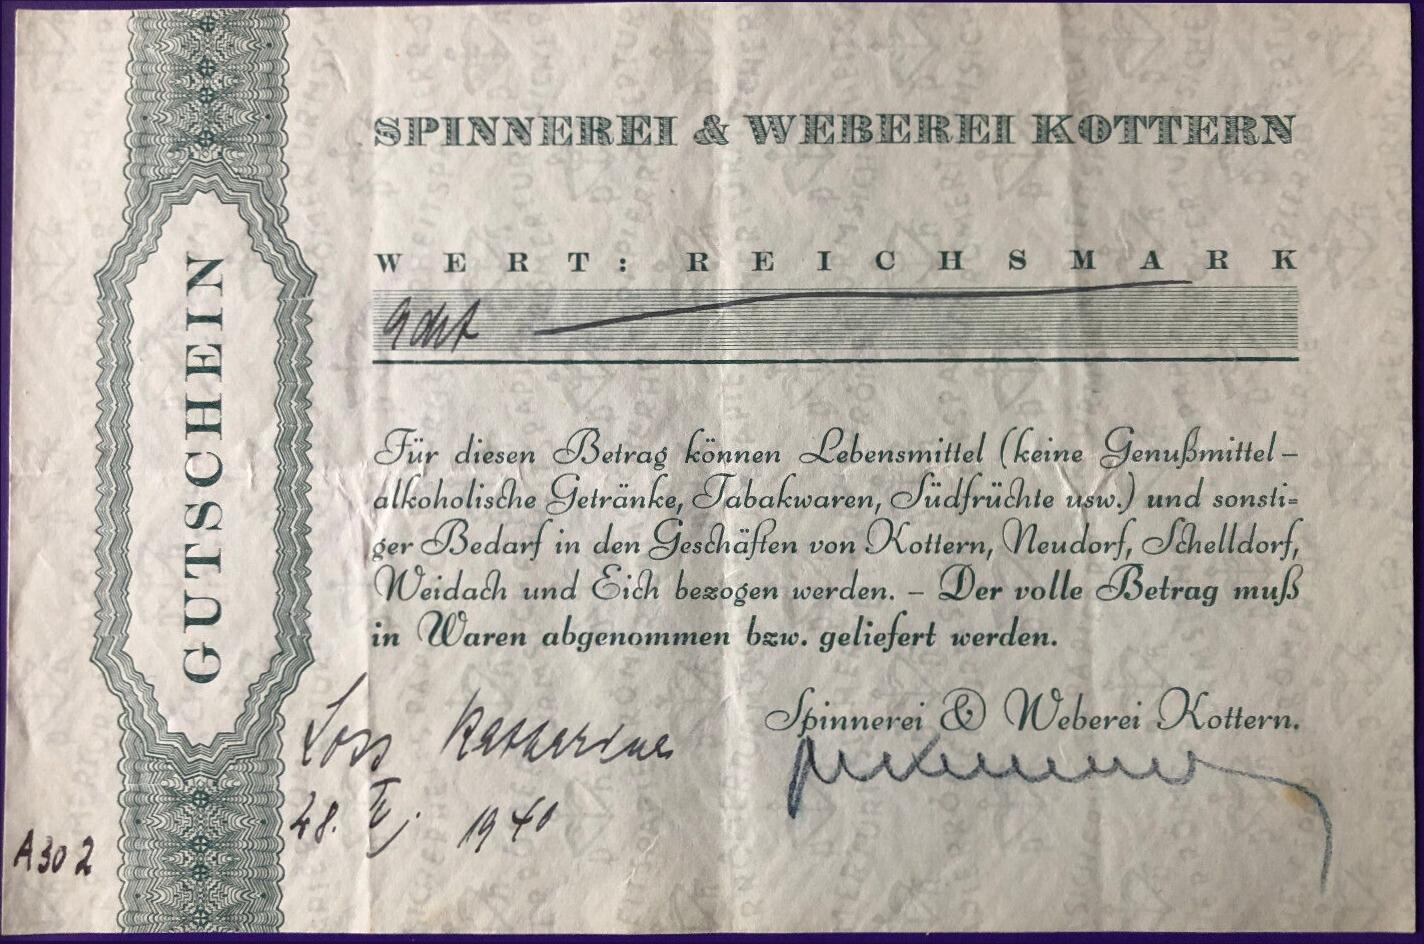 SPINNEREI & WEBEREI KOTTERN
WERT: REICHSMARK
Acht
GUTSCHEIN
Für diesen Betrag können Lebensmittel (keine Genußmittel –
alkoholische Getränke, Tabakwaren, Südfrüchte usw.) und sonsti=
ger Bedarf in den Geschäften von Kottern, Neudorf, Schelldorf,
Weidach und Eich bezogen werden. – Der volle Betrag muß
in Waren abgenommen bzw. geliefert werden.
Spinnerei & Weberei Kottern.
Katharina
1940
A302